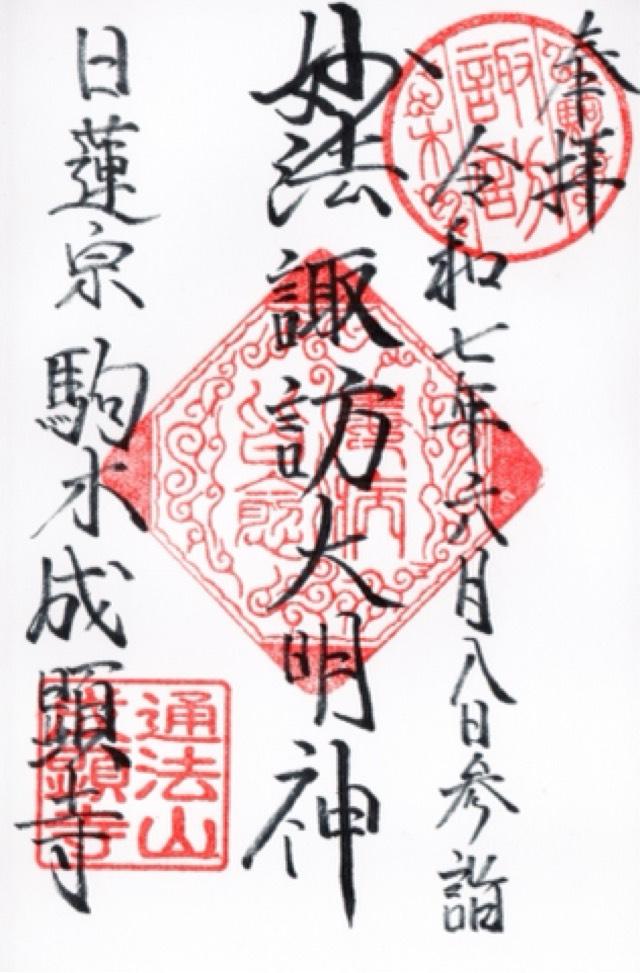 奉拝
令和七年六月八日参詣
妙法諏訪大明神
日蓮宗駒木成顕寺
諏訪
駒木
衆病
悉除
通法山
成顕寺